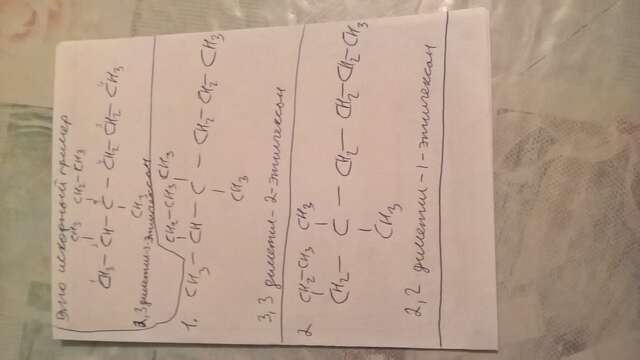 Это пример
CH3 CH2-CH3
CH3-CH-C-CH2-CH2-CH3
CH3
2,3 диметил-3-этилгексан
CH2-CH3 CH3
1. CH3-CH-C-CH2-CH2-CH3
CH3
3,3 диметил-2-этилгексан
2 CH2-CH3 CH3
CH2-C-CH2-CH2-CH2-CH3
CH3
2,2 диметил-1-этилгексан